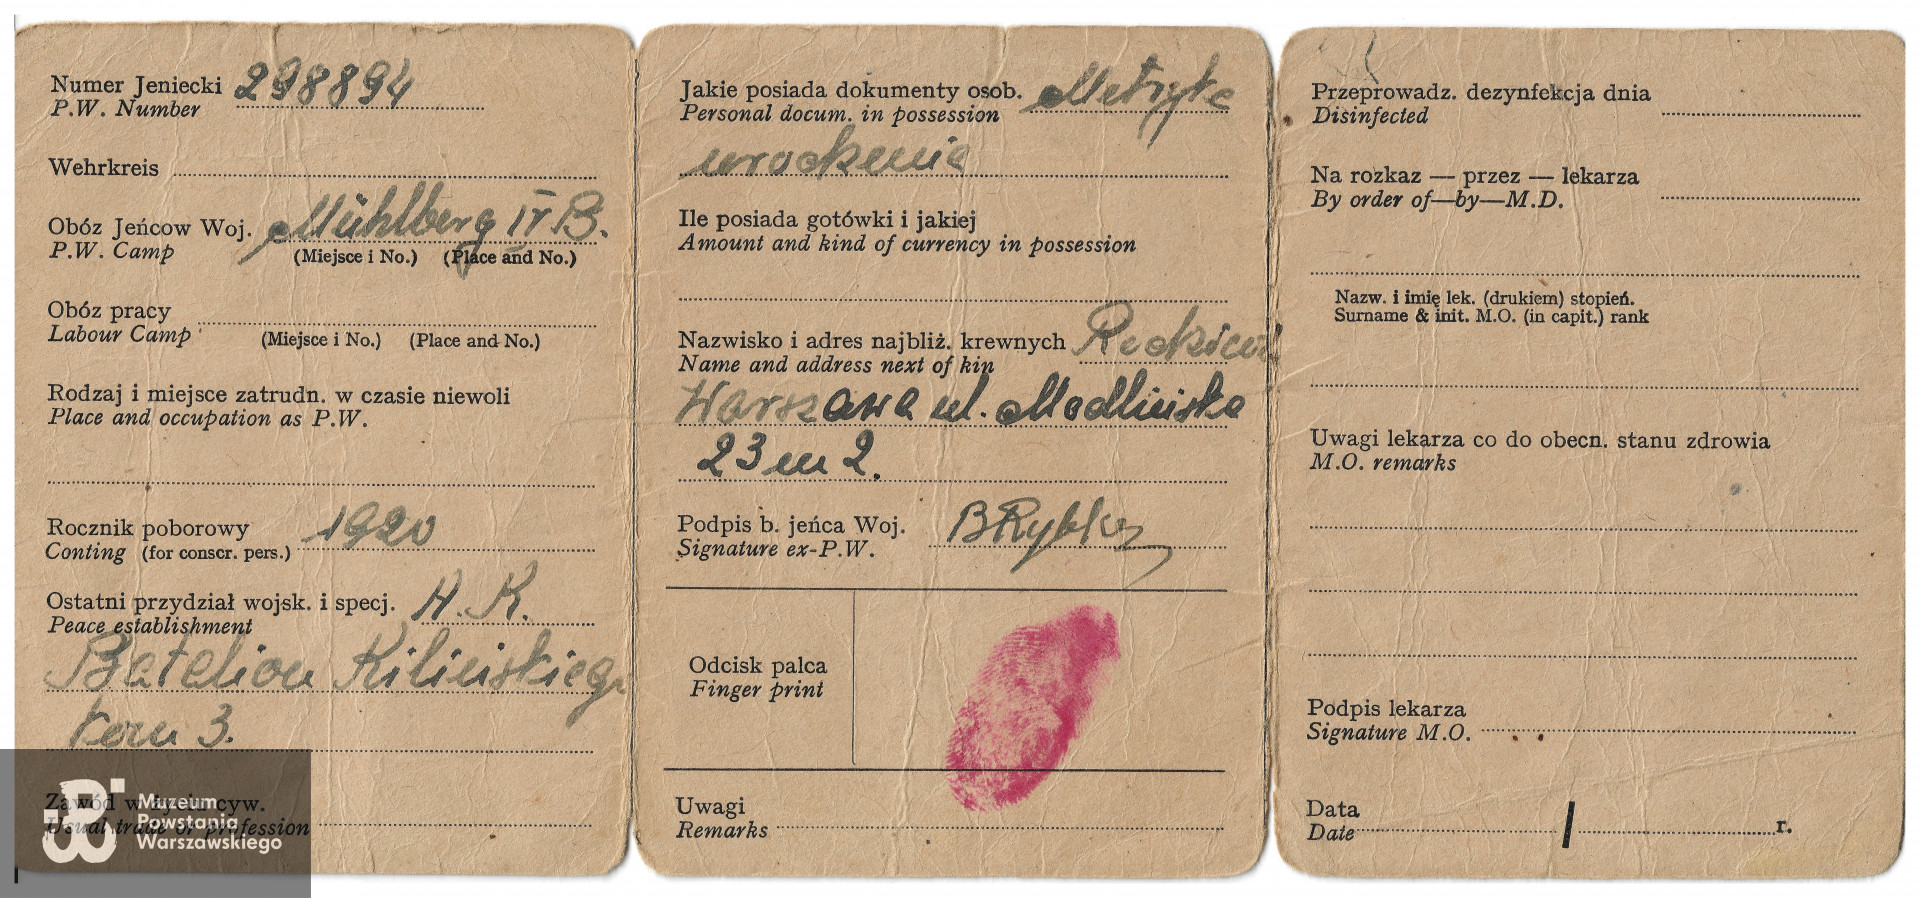 Numer Jeniecki 298894
P.W. Number
Wehrkreis
Obóz Jeńcow Woj. Mühlberg IV B.
P.W. Camp (Miejsce i No.) (Place and No.)
Obóz pracy
Labour Camp (Miejsce i No.) (Place and No.)
Rodzaj i miejsce zatrudn. w czasie niewoli
Place and occupation as P.W.
Rocznik poborowy 1920
Conting (for conscr. pers.)
Ostatni przydział wojsk. i specj. A. K.
Peace establishment
Batelion Kilińskiego
kom 3.
Zawód w życiu cyw.
Usual trade or profession
Muzeum
Powstania
Warszawskiego
Jakie posiada dokumenty osob. Metryke
Personal docum. in possession
urodzenia
Ile posiada gotówki i jakiej
Amount and kind of currency in possession
Nazwisko i adres najbliż. krewnych
Name and address next of kin
Warszawa ul. Modlińska
23 m 2.
Podpis b. jeńca Woj. BRybka
Signature ex-P.W.
Odcisk palca
Finger print
Uwagi
Remarks
Przeprowadz. dezynfekcja dnia
Disinfected
Na rozkaz — przez — lekarza
By order of—by—M.D.
Nazw. i imię lek. (drukiem) stopień.
Surname & init. M.O. (in capit.) rank
Uwagi lekarza co do obecn. stanu zdrowia
M.O. remarks
Podpis lekarza
Signature M.O.
Data
Date / r.